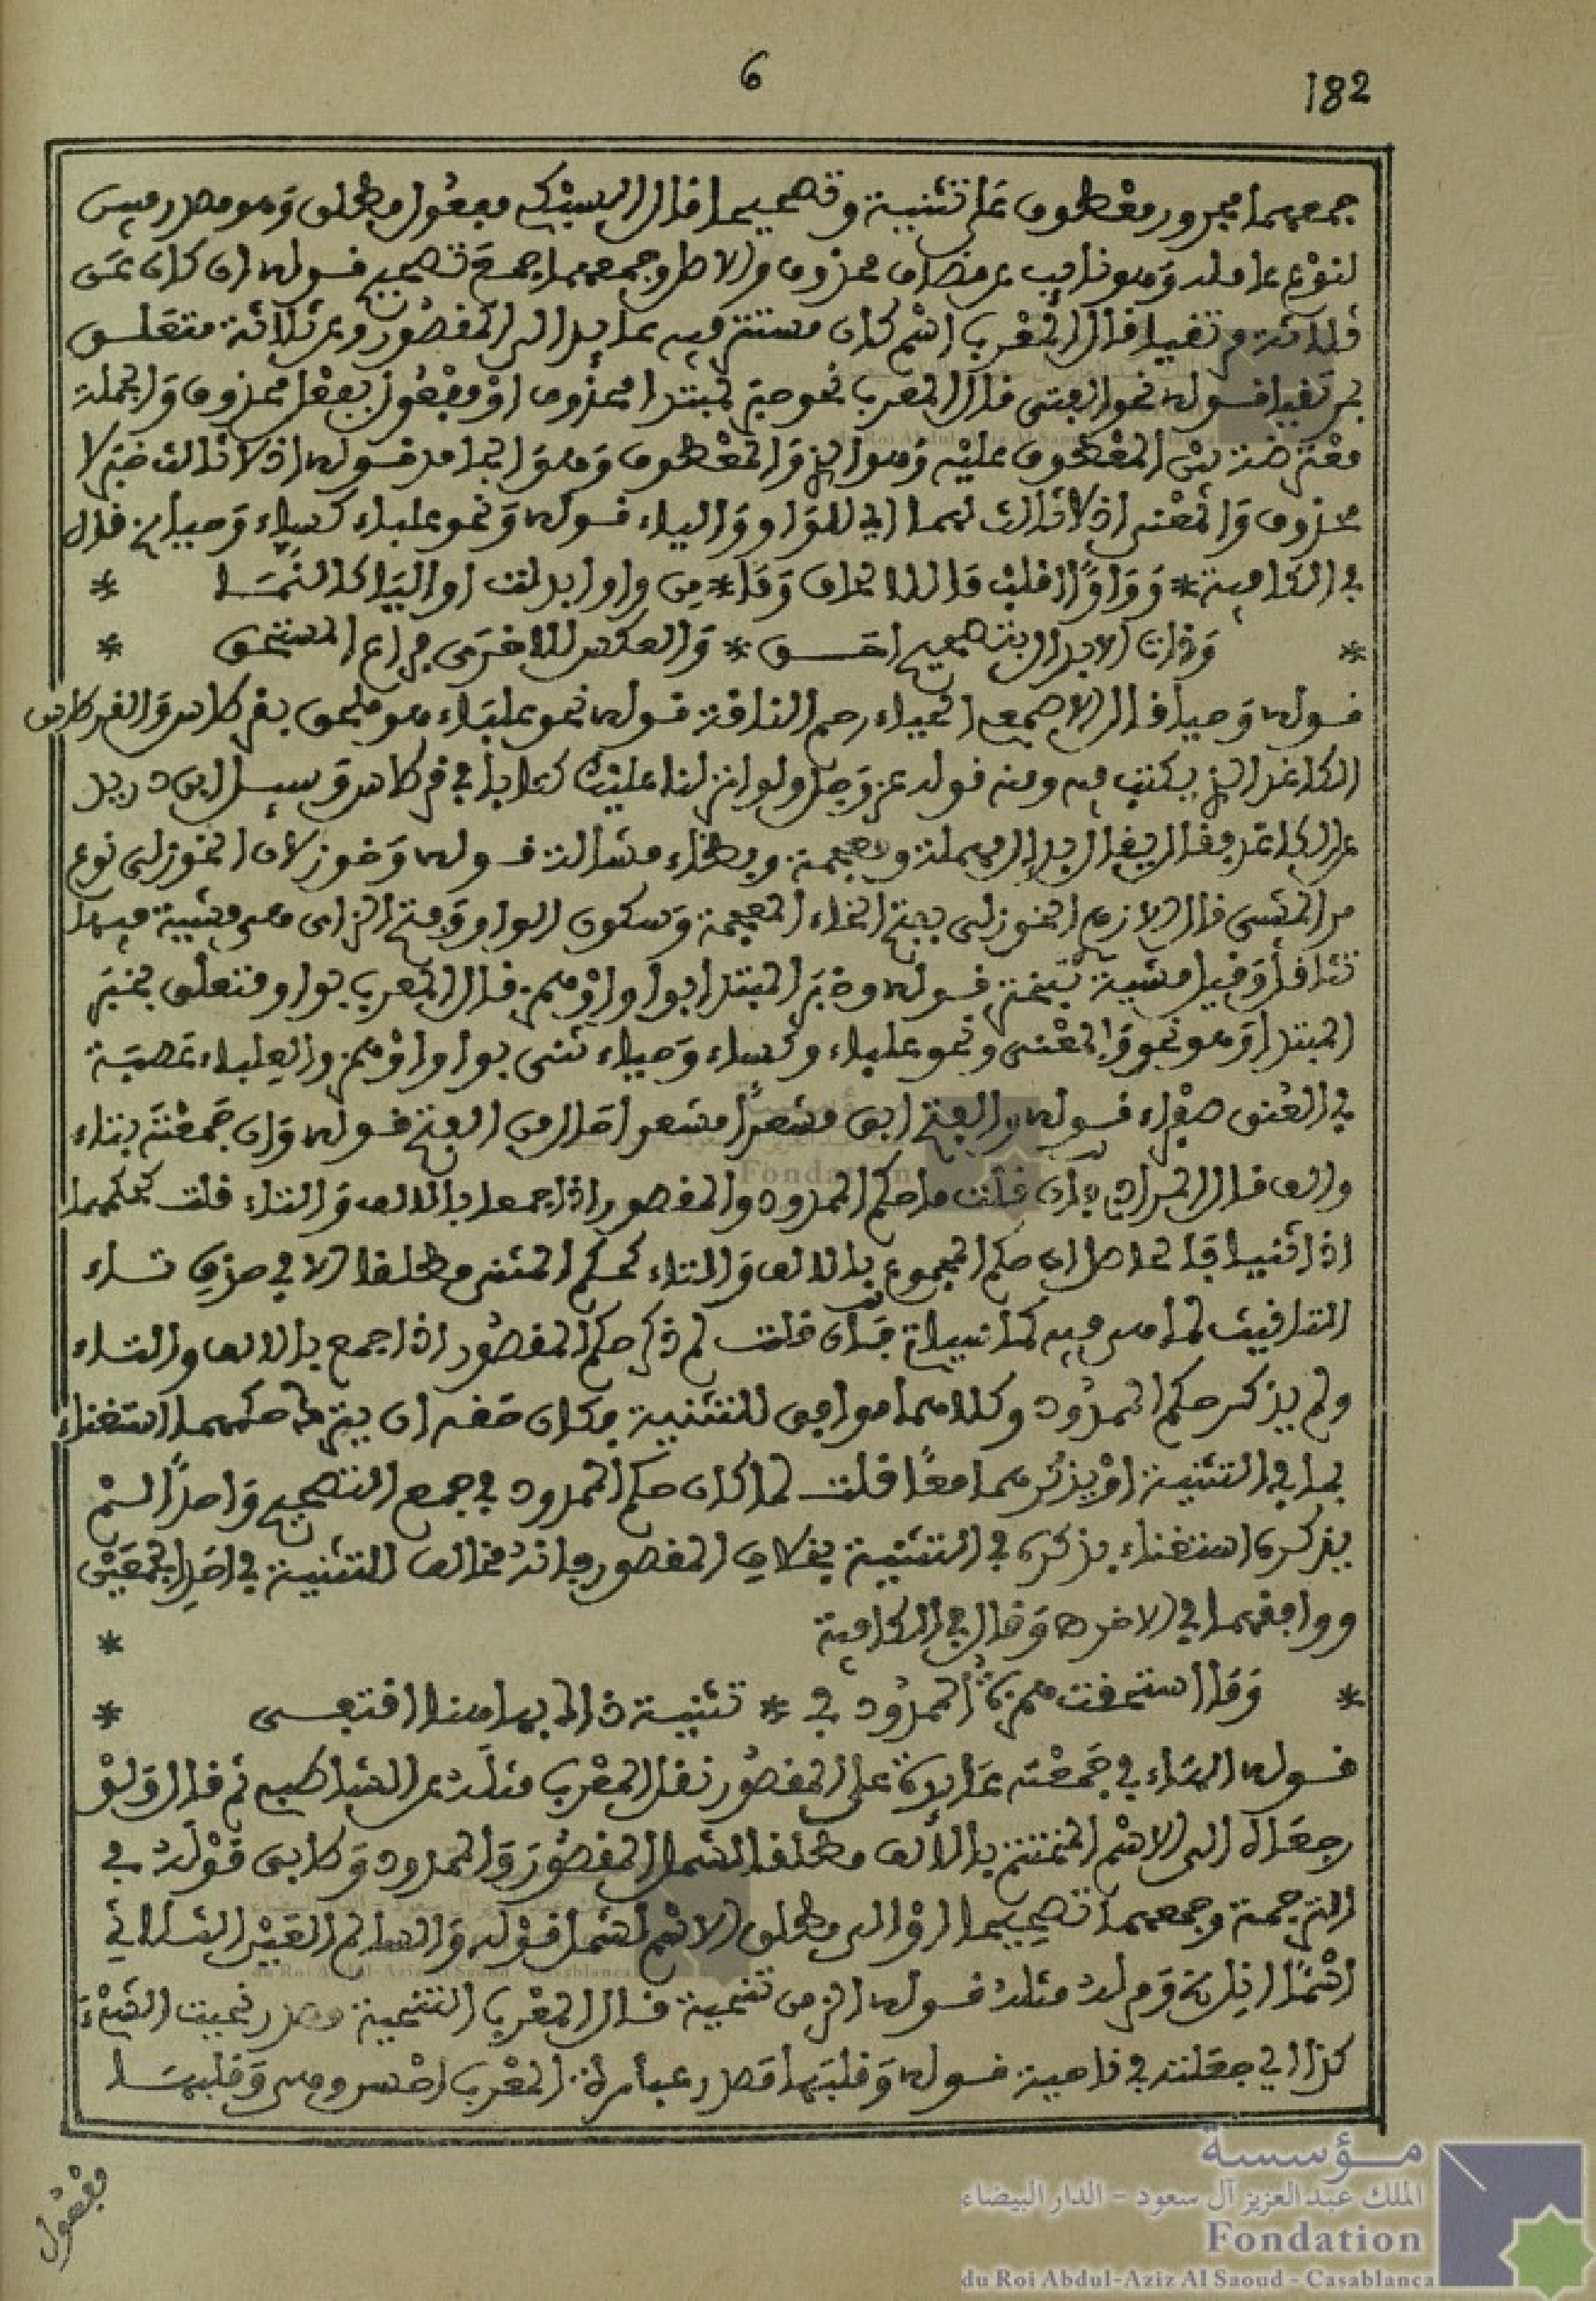 182
6
جمعهما مجرور معطوف على تثنية وتصحيحا قال السبتكي مفعول مطلق وهو مصدر مبين
لنوع عامله وهو نائب عن مضاف محذوف والاصل وجمعهما جمع تصحيح قوله ان كان عن
ثلاثة مرتقيا قال المعرب اسم كان مستتر فيه عايد الى المقصور وعن ثلاثة متعلق
بمرتقيا قوله نحو الفتى قال المعرب نحو خبر لمبتدا محذوف او مفعول بفعل محذوف والجملة
معترضة بين المعطوف عليه وهو الذي والمعطوف وهو الجامد قوله اذ لا ثالث خبر لا
محذوف والمعنى اذ لا ثالث لهما اي للواو والياء قوله ونحو علباء كساء وحياء قال
في الكافية * وواوا اقلب قا لالحاق وفا * من واو ابدلت او اليا كالنسا *
* وذان الابدال بتصحيح احق * والعكس للاخر من راع المستحق *
قوله وحيا قال الاصمعي الحياء رحم الناقة قوله نحو علباء هو ملحق بقرطاس والقرطاس
الكاغد الذي يكتب فيه ومنه قوله عز وجل ولو انزلنا عليك كتابا في قرطاس وسيل ابن دريد
عن الكاغد فقال يقال بدال مهملة ومعجمة وبظاء مشالة قوله وخوزلان الخوزلى نوع
من المشي قال الازهري الخوزلى بفتح الخاء المعجمة وسكون الواو وفتح الزاى هي مشية فيها
تثاقل وقيل مشية تبختر قوله وخبر المبتدا بواو او همز قال المعرب بواو متعلق بخبر
المبتدا وهو نحو والمعنى ونحو علباء وكساء وحياء ثنى بواو او همز والعلباء عصبة
في العنق صفراء قوله والفتح ابق مشعرا مشعرا حال من الفتح قوله وان جمعته بتاء
والف قال المرادي فان قلت ما حكم الممدود والمقصور اذا جمعا بالالف والتاء قلت كحكمهما
اذا ثنيا فالحاصل ان حكم المجموع بالالف والتاء كحكم المثنى مطلقا الا في حذف تاء
التانيث لما هي فيه كما سياتي فان قلت لم ذكر حكم المقصور اذا جمع بالالف والتاء
ولم يذكر حكم الممدود وكلاهما موافق للتثنية وكان حقه ان يترك حكمهما استغناء
بما في التثنية او يذكرهما معا قلت لما كان حكم الممدود في جمع التصحيح واحدا لم
يذكره استغناء بذكره في التثنية بخلاف المقصور فانه مخالف للتثنية في احد الجمعين
ووافقهما في الاخر ه وقال في الكافية *
* وما استحقت همزة الممدود في * تثنية ذا لها هنا اقتفى *
قوله الهاء في جمعته عايدة على المقصور نقل المعرب مثله عن الشاطبي ثم قال ولو
رجعا الى الاسم المختتم بالالف مطلقا لشمل المقصور والممدود وطابق قوله في
الترجمة وجمعهما تصحيحا او الى مطلق الاسم لشمل قوله والسالم العين الثلاثي
اسما انل ومر له مثله قوله الزمن تنحية قال المعرب التنحية مصدر نحيت الشيء
كذا اي جعلته في ناحية قوله وقلبها مصدر عبارة المعرب احسن وهي وقلبها
مفعول
مؤسسة
الملك عبد العزيز آل سعود - الدار البيضاء
Fondation
du Roi Abdul-Aziz Al Saoud - Casablanca